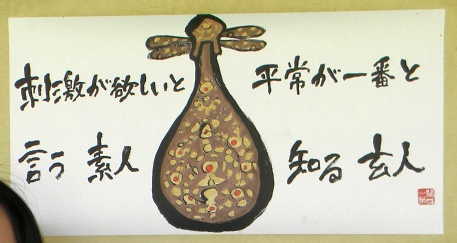 刺激が欲しいと
言う 素人
平常が一番と
知る 玄人